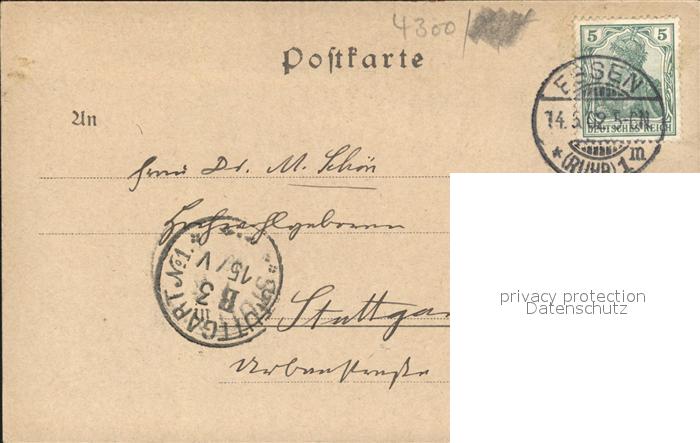 4300/
Postkarte
5 5
DEUTSCHES REICH
ESSEN
14.5.02.5-6N
*(RUHR)1m
An
Herrn Dr. M. Schön
Hochwohlgeboren
STUTTGART No1.
15/V
3
Stuttga
Urbanstraße
privacy protection
Datenschutz